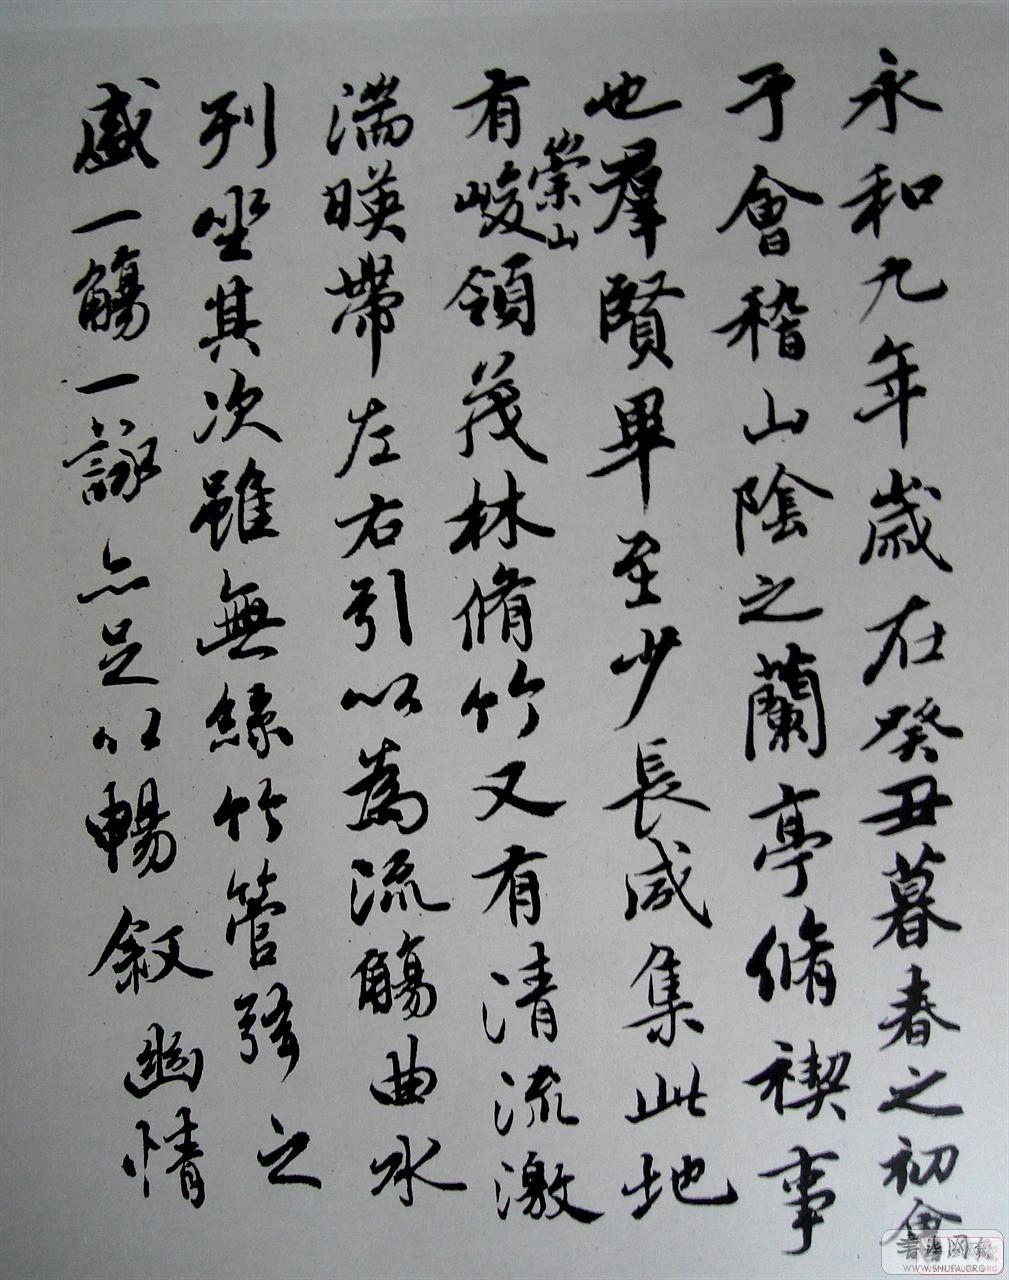 永和九年歲在癸丑暮春之初會
于會稽山陰之蘭亭脩禊事
也羣賢畢至少長咸集此地
有崇山峻領茂林脩竹又有清流激
湍暎帶左右引以為流觴曲水
列坐其次雖無絲竹管弦之
盛一觴一詠亦足以暢敘幽情
書法國報
WWW.SHUFAI.ORG